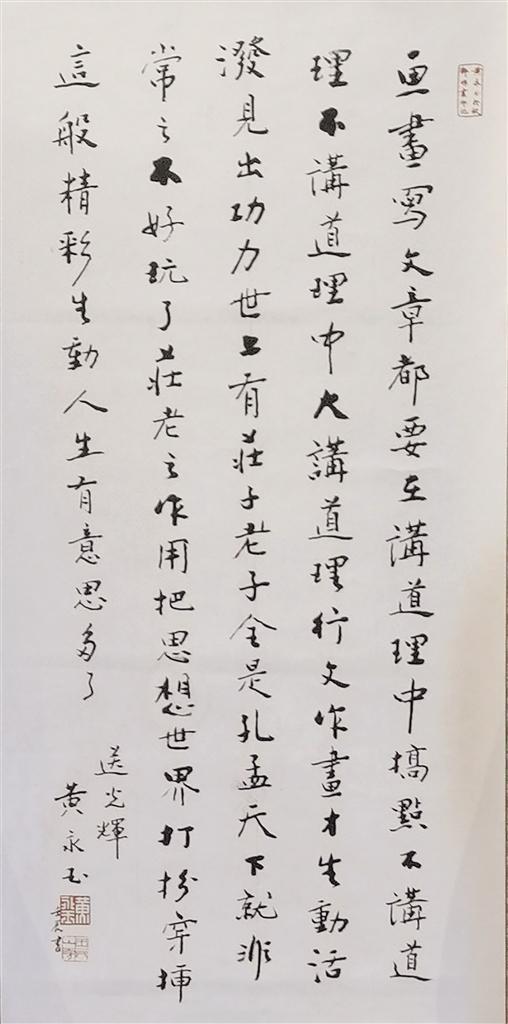 画畫寫文章都要在講道理中搞點不講道
理不講道理中又講道理行文作畫才生動活
潑見出功力世上有莊子老子全是孔孟天下就非
常之不好玩了莊老之作用把思想世界打扮穿插
這般精彩生動人生有意思多了
送光輝
黃永玉